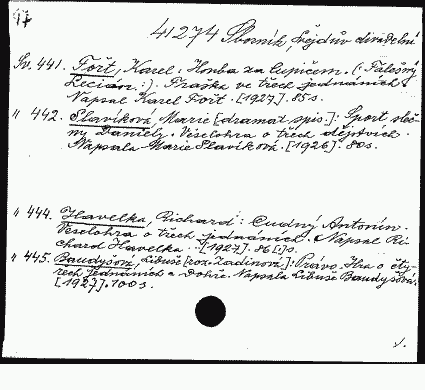 41274 Sborník, Švejdův divadelní
Sv. 441. Fořt, Karel: Honba za čupičem. (: Falešný
Lecián:). Fraška ve třech jednáních.
Napsal Karel Fořt. [1927]. 85 s.
" 442. Slavíková, Marie [dramat. spis.]: Sport sleč-
ny Daniely. Veselohra o třech dějstvích.
Napsala Marie Slavíková. [1926]. 80 s.
" 444. Havelka, Richard: Cudný Antonín.
Veselohra o třech jednáních. Napsal Ri-
chard Havelka. [1927]. 86 [1] s.
" 445. Baudyšová, Libuše [roz. Zadinová]: Právo. Hra o čty-
řech jednáních a Dohře. Napsala Libuše Baudyšová.
[1927]. 100 s.